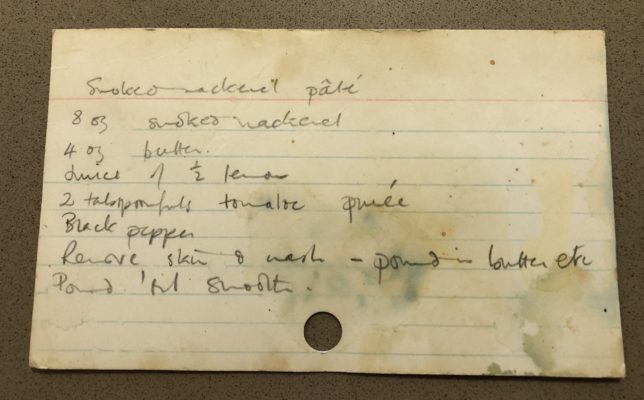 Smoked mackerel pâté
8 oz smoked mackerel
4 oz butter.
Juice of ½ lemon
2 tablspoonfuls tomatoe purée
Black pepper
Remove skin & mash - pound in butter etc
Pound 'til smooth.